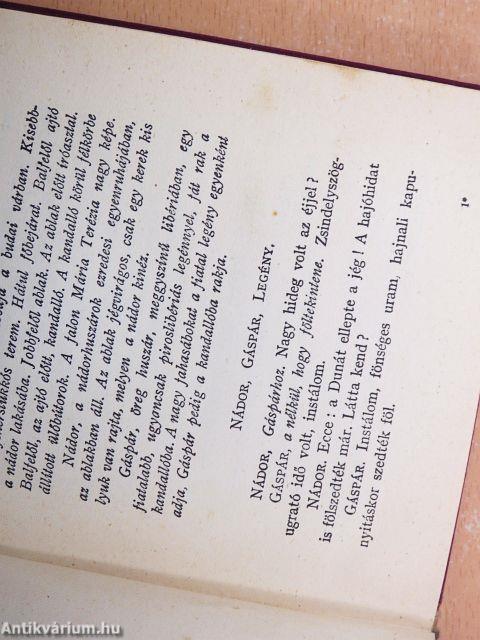 a budai várban. Kisebb-
a nádor lakásába. Jobbfelől ablak. Hátul főbejárat. Balfelől ajtó
Balfelől, az ajtó előtt, kandalló. Az ablak előtt íróasztal.
állított ülőbútorok. A falon Mária Terézia nagy képe.
Nádor, a nádorhuszárok ezredesi egyenruhájában,
az ablakban áll. Az ablak jégvirágos, csak egy kerek kis
lyuk van rajta, melyen a nádor kinéz.
Gáspár, öreg huszár, meggyszínű libériában, egy
fiatalabb, ugyoncsak piroslibériás legénnyel, fát rak a
kandallóba. A nagy fahasábokat a fiatal legény egyenként
adja, Gáspár pedig a kandallóba rakja.
NÁDOR, GÁSPÁR, LEGÉNY.
NÁDOR, Gáspárhoz. Nagy hideg volt az éjjel?
GÁSPÁR, a nélkül, hogy föltekintene. Zsindelyszög-
ugrató idő volt, instálom.
NÁDOR. Ecce: a Dunát ellepte a jég! A hajóhidat
is fölszedték már. Látta kend?
GÁSPÁR. Instálom, fönséges uram, hajnali kapu-
nyitáskor szedték föl.
1*
Antikvárium.hu